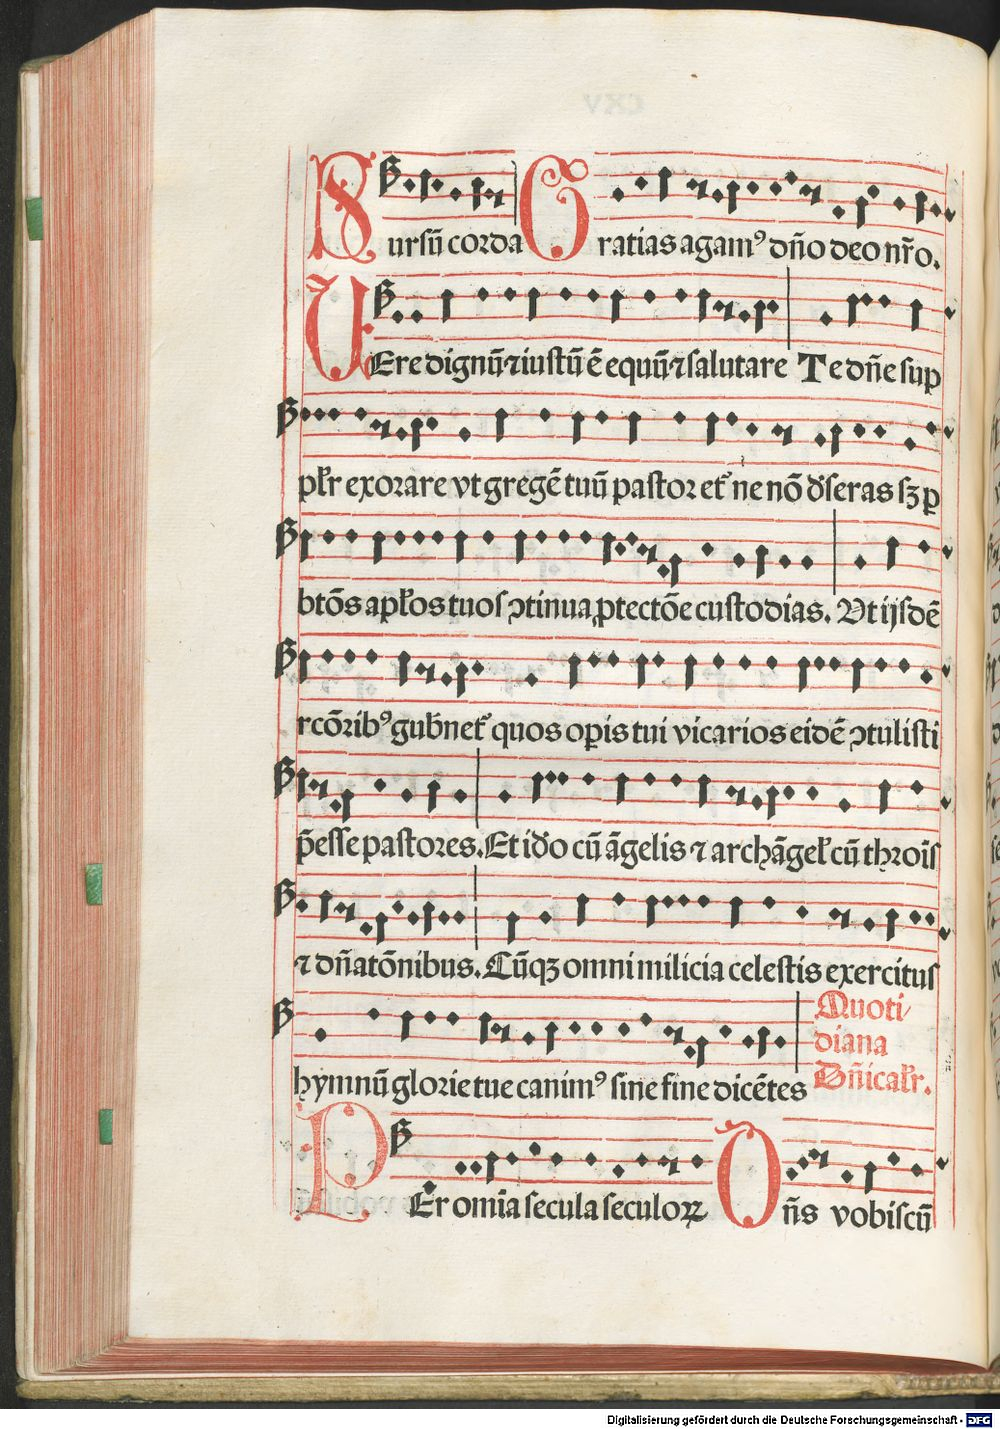 Sursū corda Gratias agamꝰ dño deo nr̄o.
VEre dignū ⁊ iustū ē equū ⁊ salutare Te dñe sup
pl̓r exorare vt gregē tuū pastor et̓ne nō d̓seras sꝫ ꝑ
btōs apl̓os tuos ↄtinua ꝓtectōe custodias. Vt ijsdē
rcōribꝰ gub̄net̓ quos oꝑis tui vicarios eidē ↄtulisti
p̄esse pastores. Et id̓o cū āgelis ⁊ archāgel̓ cū throīs
⁊ dñatōnibus. Cūqꝫ omni milicia celestis exercitus
hymnū glorie tue canimꝰ sine fine dicētes
Quoti/
diana
Dñical̓r.
PEr omīa secula seculoꝝ Dñs vobiscū
CXV
Digitalisierung gefördert durch die Deutsche Forschungsgemeinschaft - DFG